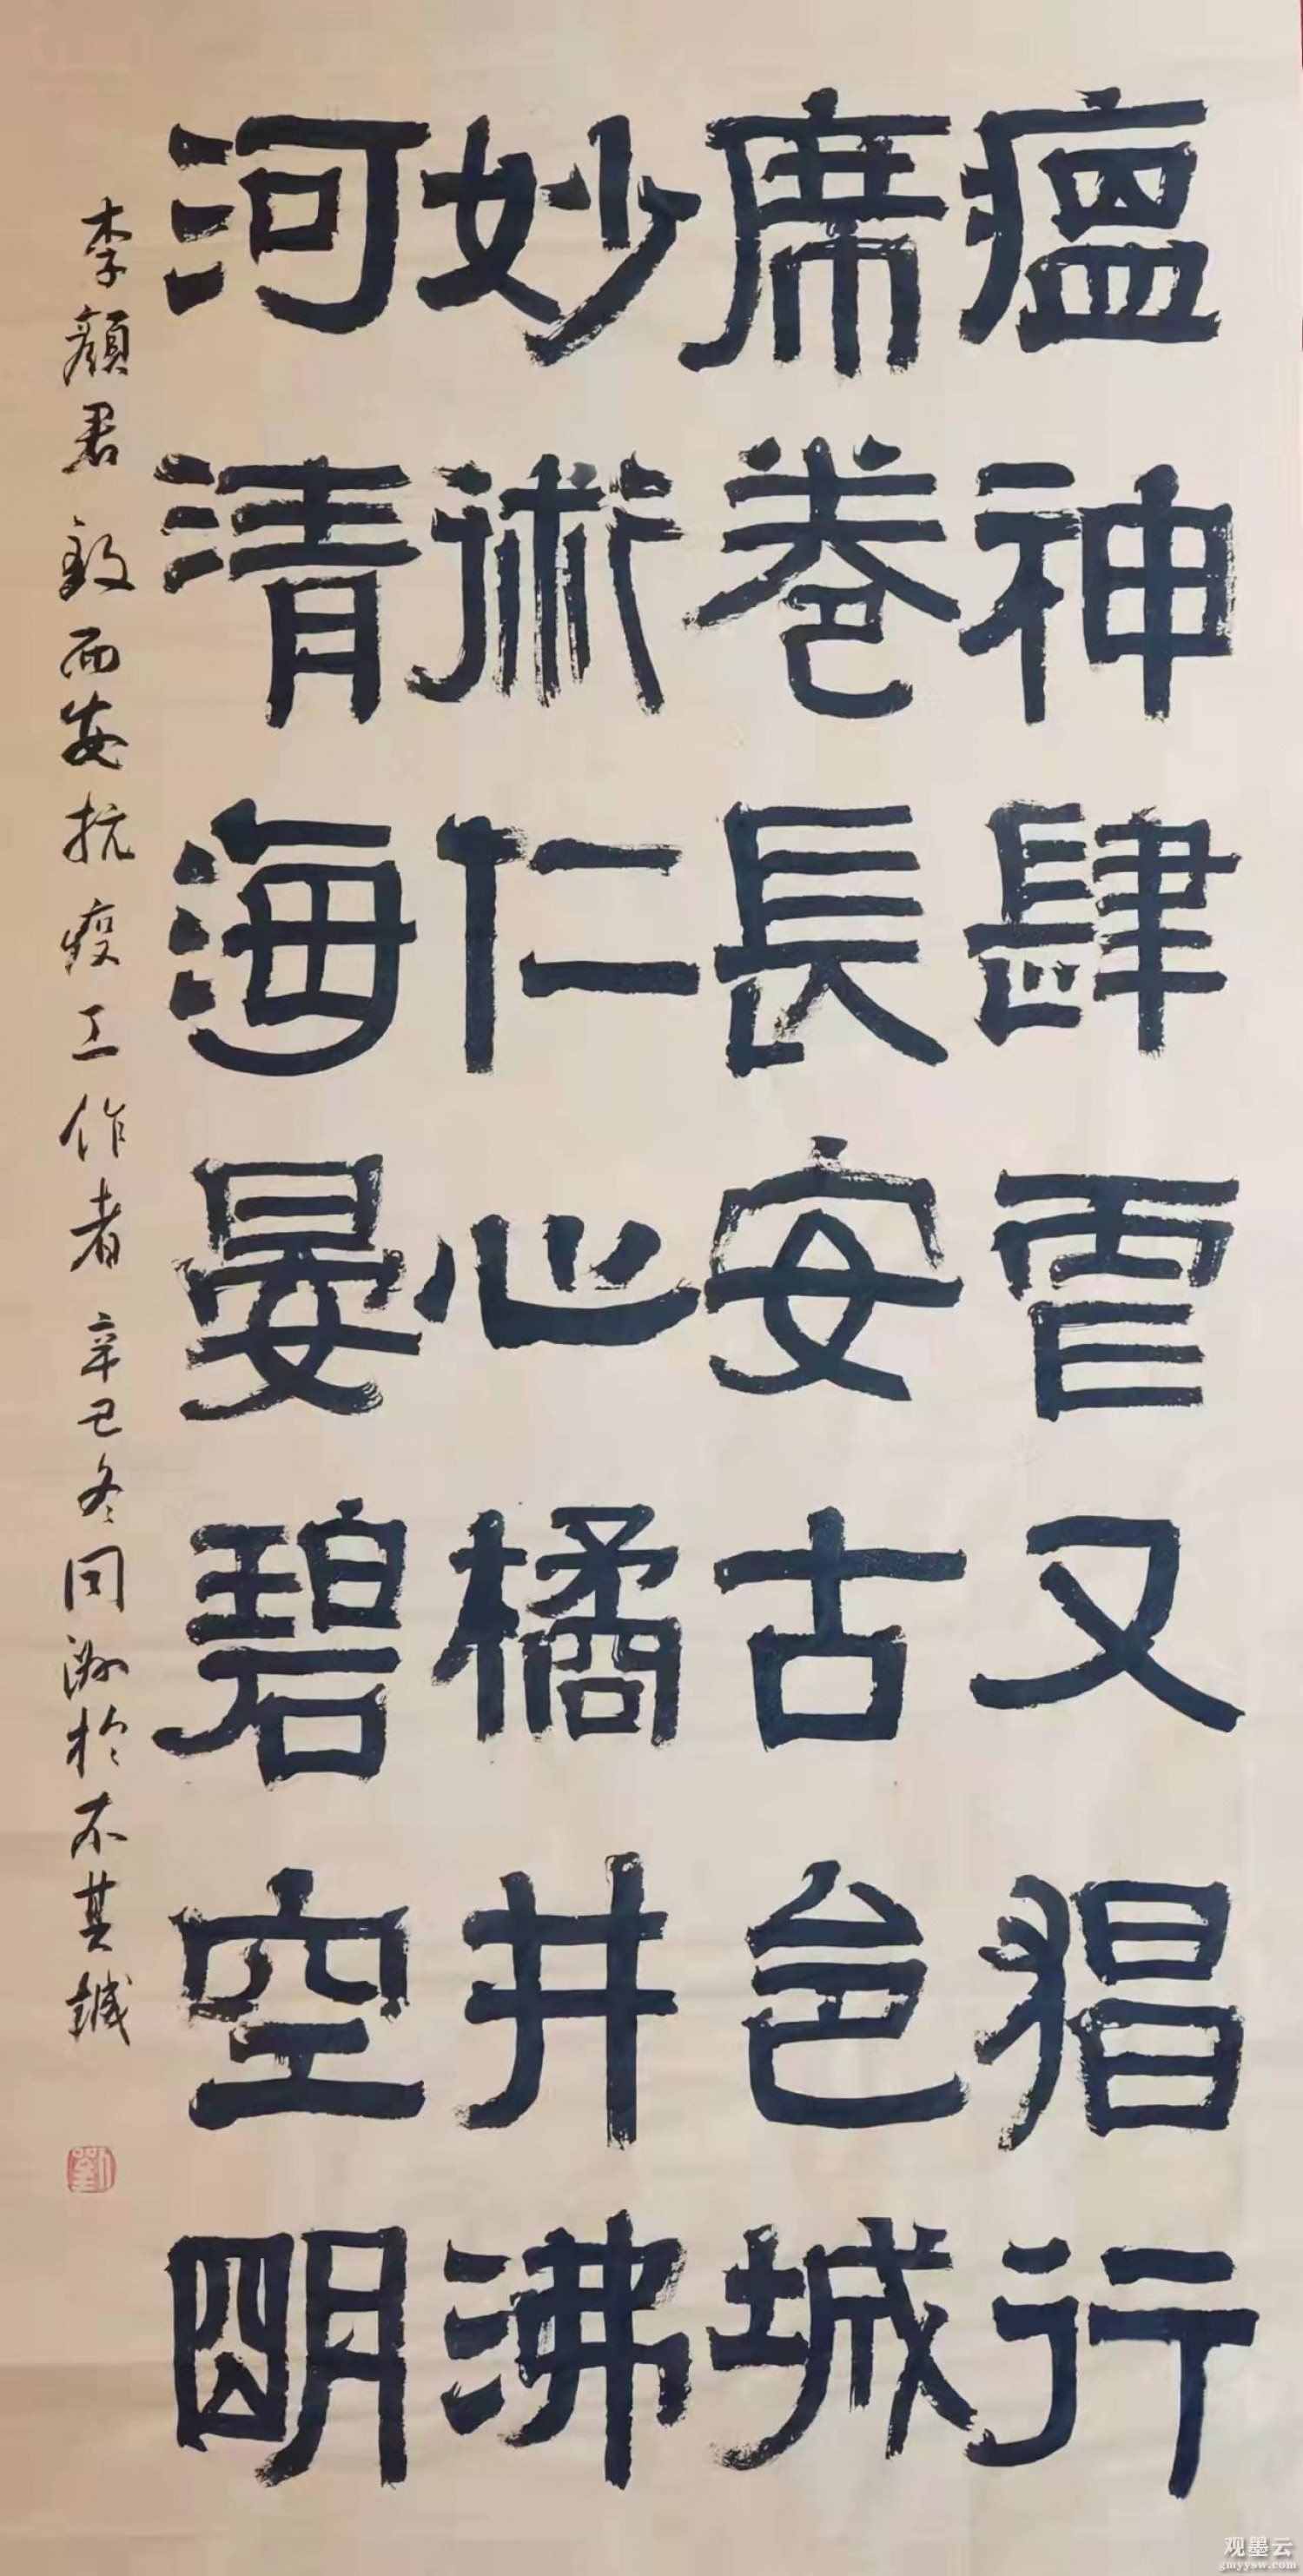 瘟神肆虐又猖行
席卷長安古邑城
妙術仁心橘井沸
河清海晏碧空明
李顏君致西安抗疫工作者 辛丑冬同渊於不其誠
劉
观墨云
gmyysw.com